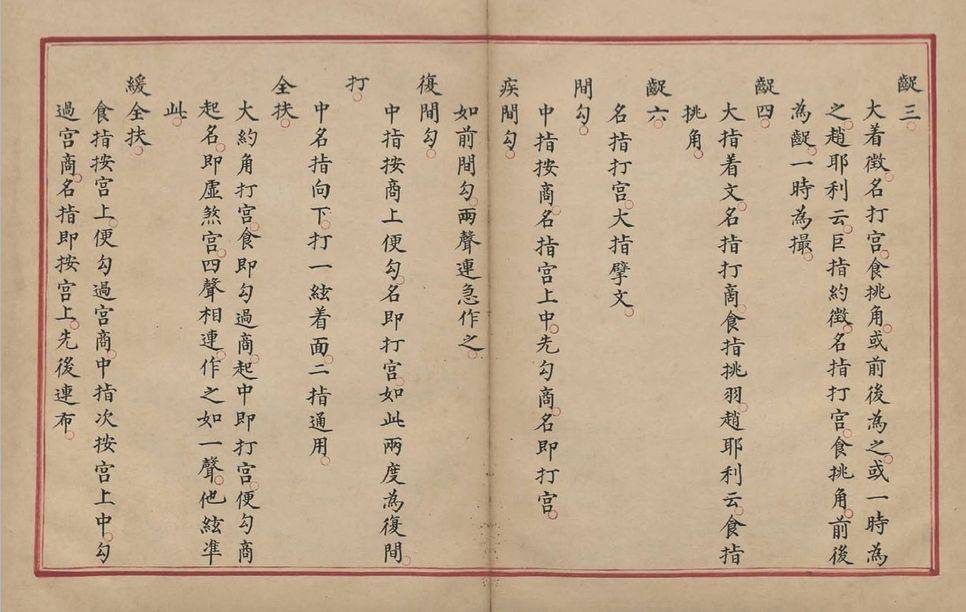 齪三
大着徵名打宮食挑角或前後為之或一時為
之趙耶利云巨指約徵名指打宮食挑角前後
為齪一時為撮
齪四
大指着文名指打商食指挑羽趙耶利云食指
挑角
齪六
名指打宮大指擘文
間勾
中指按商名指宮上中先勾商名即打宮
疾間勾
如前間勾兩聲連急作之
復間勾
中指按商上便勾名即打宮如此兩度為復間
打
中名指向下打一絃着面二指通用
全扶
大約角打宮食即勾過商起中即打宮便勾商
起名即虛煞宮四聲相連作之如一聲他絃準
此
緩全扶
食指按宮上便勾過宮商中指次按宮上中勾
過宮商名指即按宮上先後連布